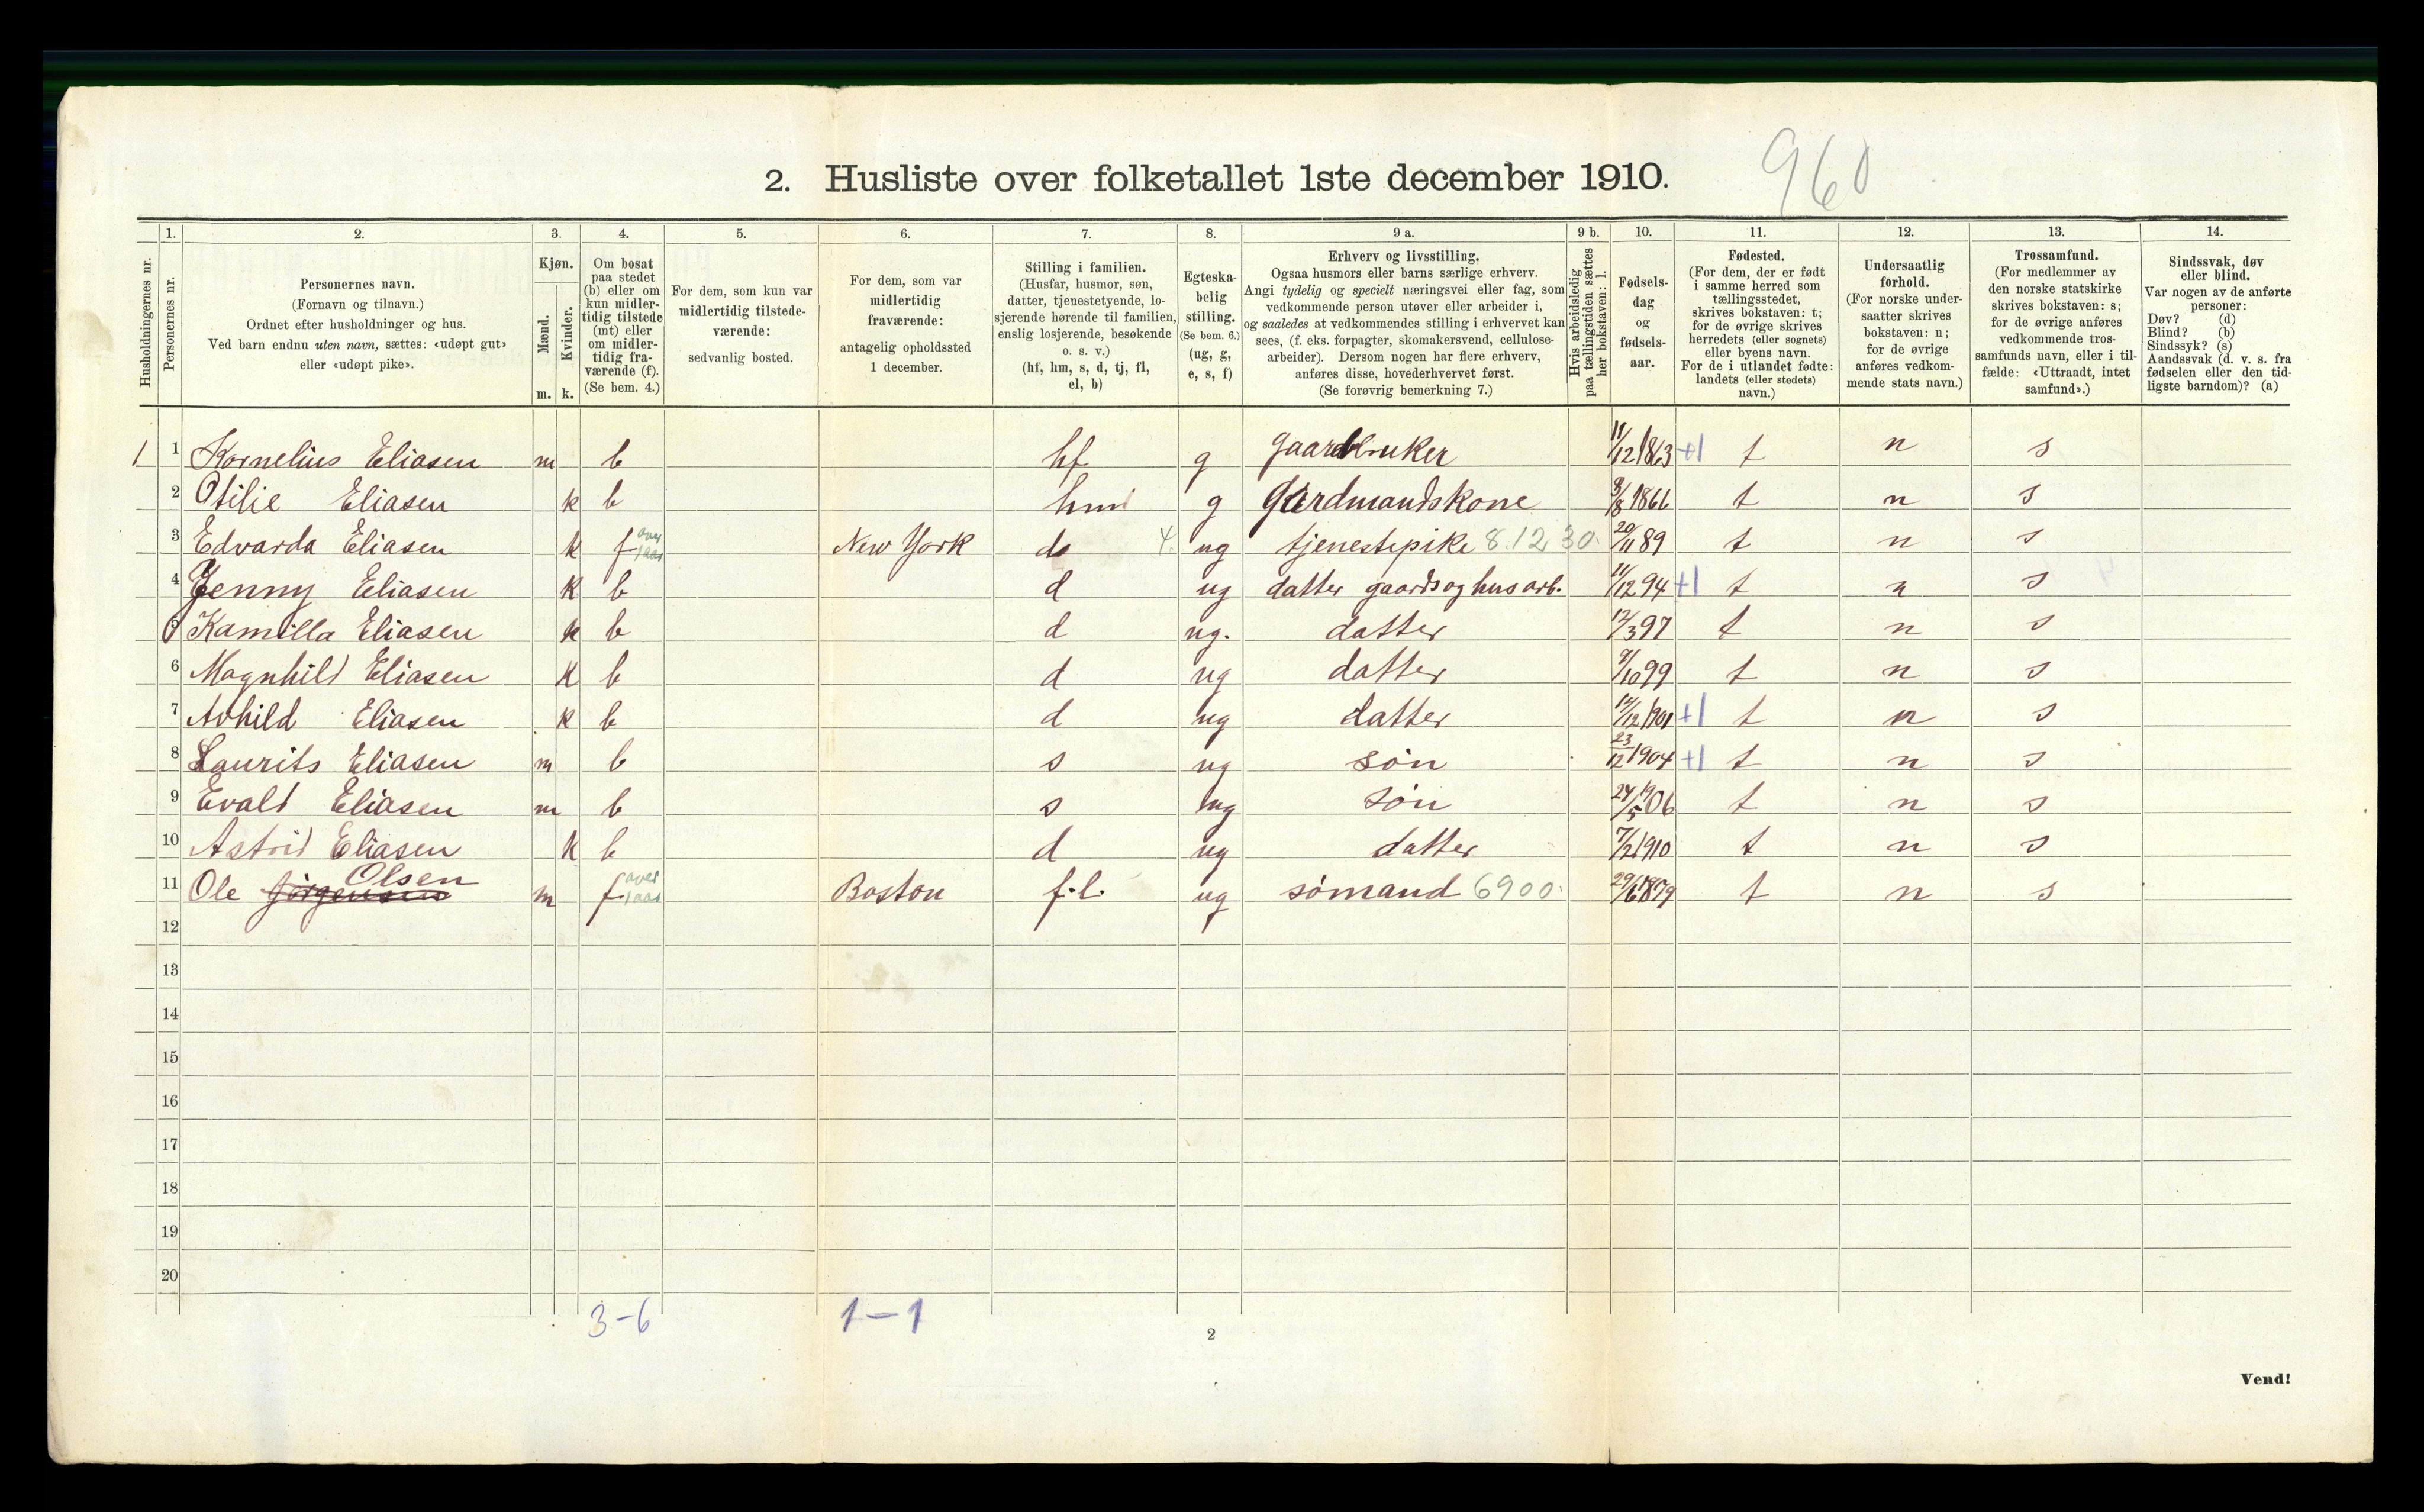 960
2. Husliste over folketallet 1ste december 1910.
Husholdningernes nr.
1.
Personernes nr.
2.
Personernes navn.
(Fornavn og tilnavn.)
Ordnet efter husholdninger og hus.
Ved barn endnu uten navn, sættes: «udøpt gut»
eller «udøpt pike».
3.
Kjøn.
Mænd.
Kvinder.
m. k.
4.
Om bosat
paa stedet
(b) eller om
kun midler-
tidig tilstede
(mt) eller
om midler-
tidig fra-
værende (f).
(Se bem. 4.)
5.
For dem, som kun var
midlertidig tilstede-
værende:
sedvanlig bosted.
6.
For dem, som var
midlertidig
fraværende:
antagelig opholdssted
1 december.
7.
Stilling i familien.
(Husfar, husmor, søn,
datter, tjenestetyende, lo-
sjerende hørende til familien,
enslig losjerende, besøkende
o. s. v.)
(hf, hm, s, d, tj, fl,
el, b)
8.
Egteska-
belig
stilling.
(Se bem. 6.)
(ug, g,
e, s, f)
9 a.
Erhverv og livsstilling.
Ogsaa husmors eller barns særlige erhverv.
Angi tydelig og specielt næringsvei eller fag, som
vedkommende person utøver eller arbeider i,
og saaledes at vedkommendes stilling i erhvervet kan
sees, (f. eks. forpagter, skomakersvend, cellulose-
arbeider). Dersom nogen har flere erhverv,
anføres disse, hovederhvervet først.
(Se forøvrig bemerkning 7.)
9 b.
Hvis arbeidsledig
paa tællingstiden sættes
her bokstaven: l.
10.
Fødsels-
dag
og
fødsels-
aar.
11.
Fødested.
(For dem, der er født
i samme herred som
tællingsstedet,
skrives bokstaven: t;
for de øvrige skrives
herredets (eller sognets)
eller byens navn.
For de i utlandet fødte:
landets (eller stedets)
navn.)
12.
Undersaatlig
forhold.
(For norske under-
saatter skrives
bokstaven: n;
for de øvrige
anføres vedkom-
mende stats navn.)
13.
Trossamfund.
(For medlemmer av
den norske statskirke
skrives bokstaven: s;
for de øvrige anføres
vedkommende tros-
samfunds navn, eller i til-
fælde: «Uttraadt, intet
samfund».)
14.
Sindssvak, døv
eller blind.
Var nogen av de anførte
personer:
Døv? (d)
Blind? (b)
Sindssyk? (s)
Aandssvak (d. v. s. fra
fødselen eller den tid-
ligste barndom)? (a)
1 1 Kornelius Eliasen m b hf g gaardbruker 11/12 1863 +1 t n s
2 Otilie Eliasen k b hm g Gardmandskone 9/8 1866 t n s
3 Edvarda Eliasen k f over 1 aar New York d 4. ug tjenestepike 8.12.30. 20/11 89 t n s
4 Jenny Eliasen k b d ug datter gaards og hus arb. 11/12 94 +1 t n s
5 Kamilla Eliasen k b d ug. datter 12/3 97 t n s
6 Magnhild Eliasen k b d ug datter 8/10 99 t n s
7 Avhild Eliasen k b d ug datter 14/12 1901 +1 t n s
8 Laurits Eliasen m b s ug søn 23/12 1904 +1 t n s
9 Evald Eliasen m b s ug søn 24/5 06 t n s
10 Astrid Eliasen k b d ug datter 7/2 1910 t n s
11 Ole Jørgensen Olsen m f over 1 aar Boston f.l. ug sømand 6900. 29/6 1879 t n s
12
13
14
15
16
17
18
19
20
3-6 1-1
2
Vend!